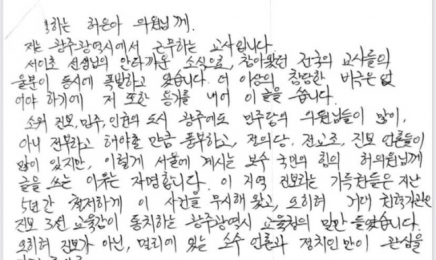 존경하는 허은아 의원님께.
저는 광주광역시에서 근무하는 교사입니다.
서이초 선생님의 안타까운 소식으로, 참아왔던 전국의 교사들의
울분이 동시에 폭발하고 있습니다. 더 이상의 참담한 비극은 없
어야 하기에 저 또한 용기를 내어 이 글을 씁니다.
소위 진보, 민주, 인권의 도시 광주에도 민주당의 의원님들이 많이,
아니 전부라고 해야할 만큼 풍부하고, 정의당, 전교조, 진보 언론들이
많이 있지만, 이렇게 서울에 계시는 보수 국민의 힘의 허의원님께
글을 쓰는 이유는 자명합니다. 이 지역 진보라는 기득권들은 지난
5년간 철저하게 이 사건을 무시해 왔고, 오히려 거대 권력기관인
진보 3선 교육감이 통치하는 광주광역시 교육청의 말만 들었습니다.
오히려 진보가 아닌, 멀리에 있는 소수 언론과 정치인만이 관심을